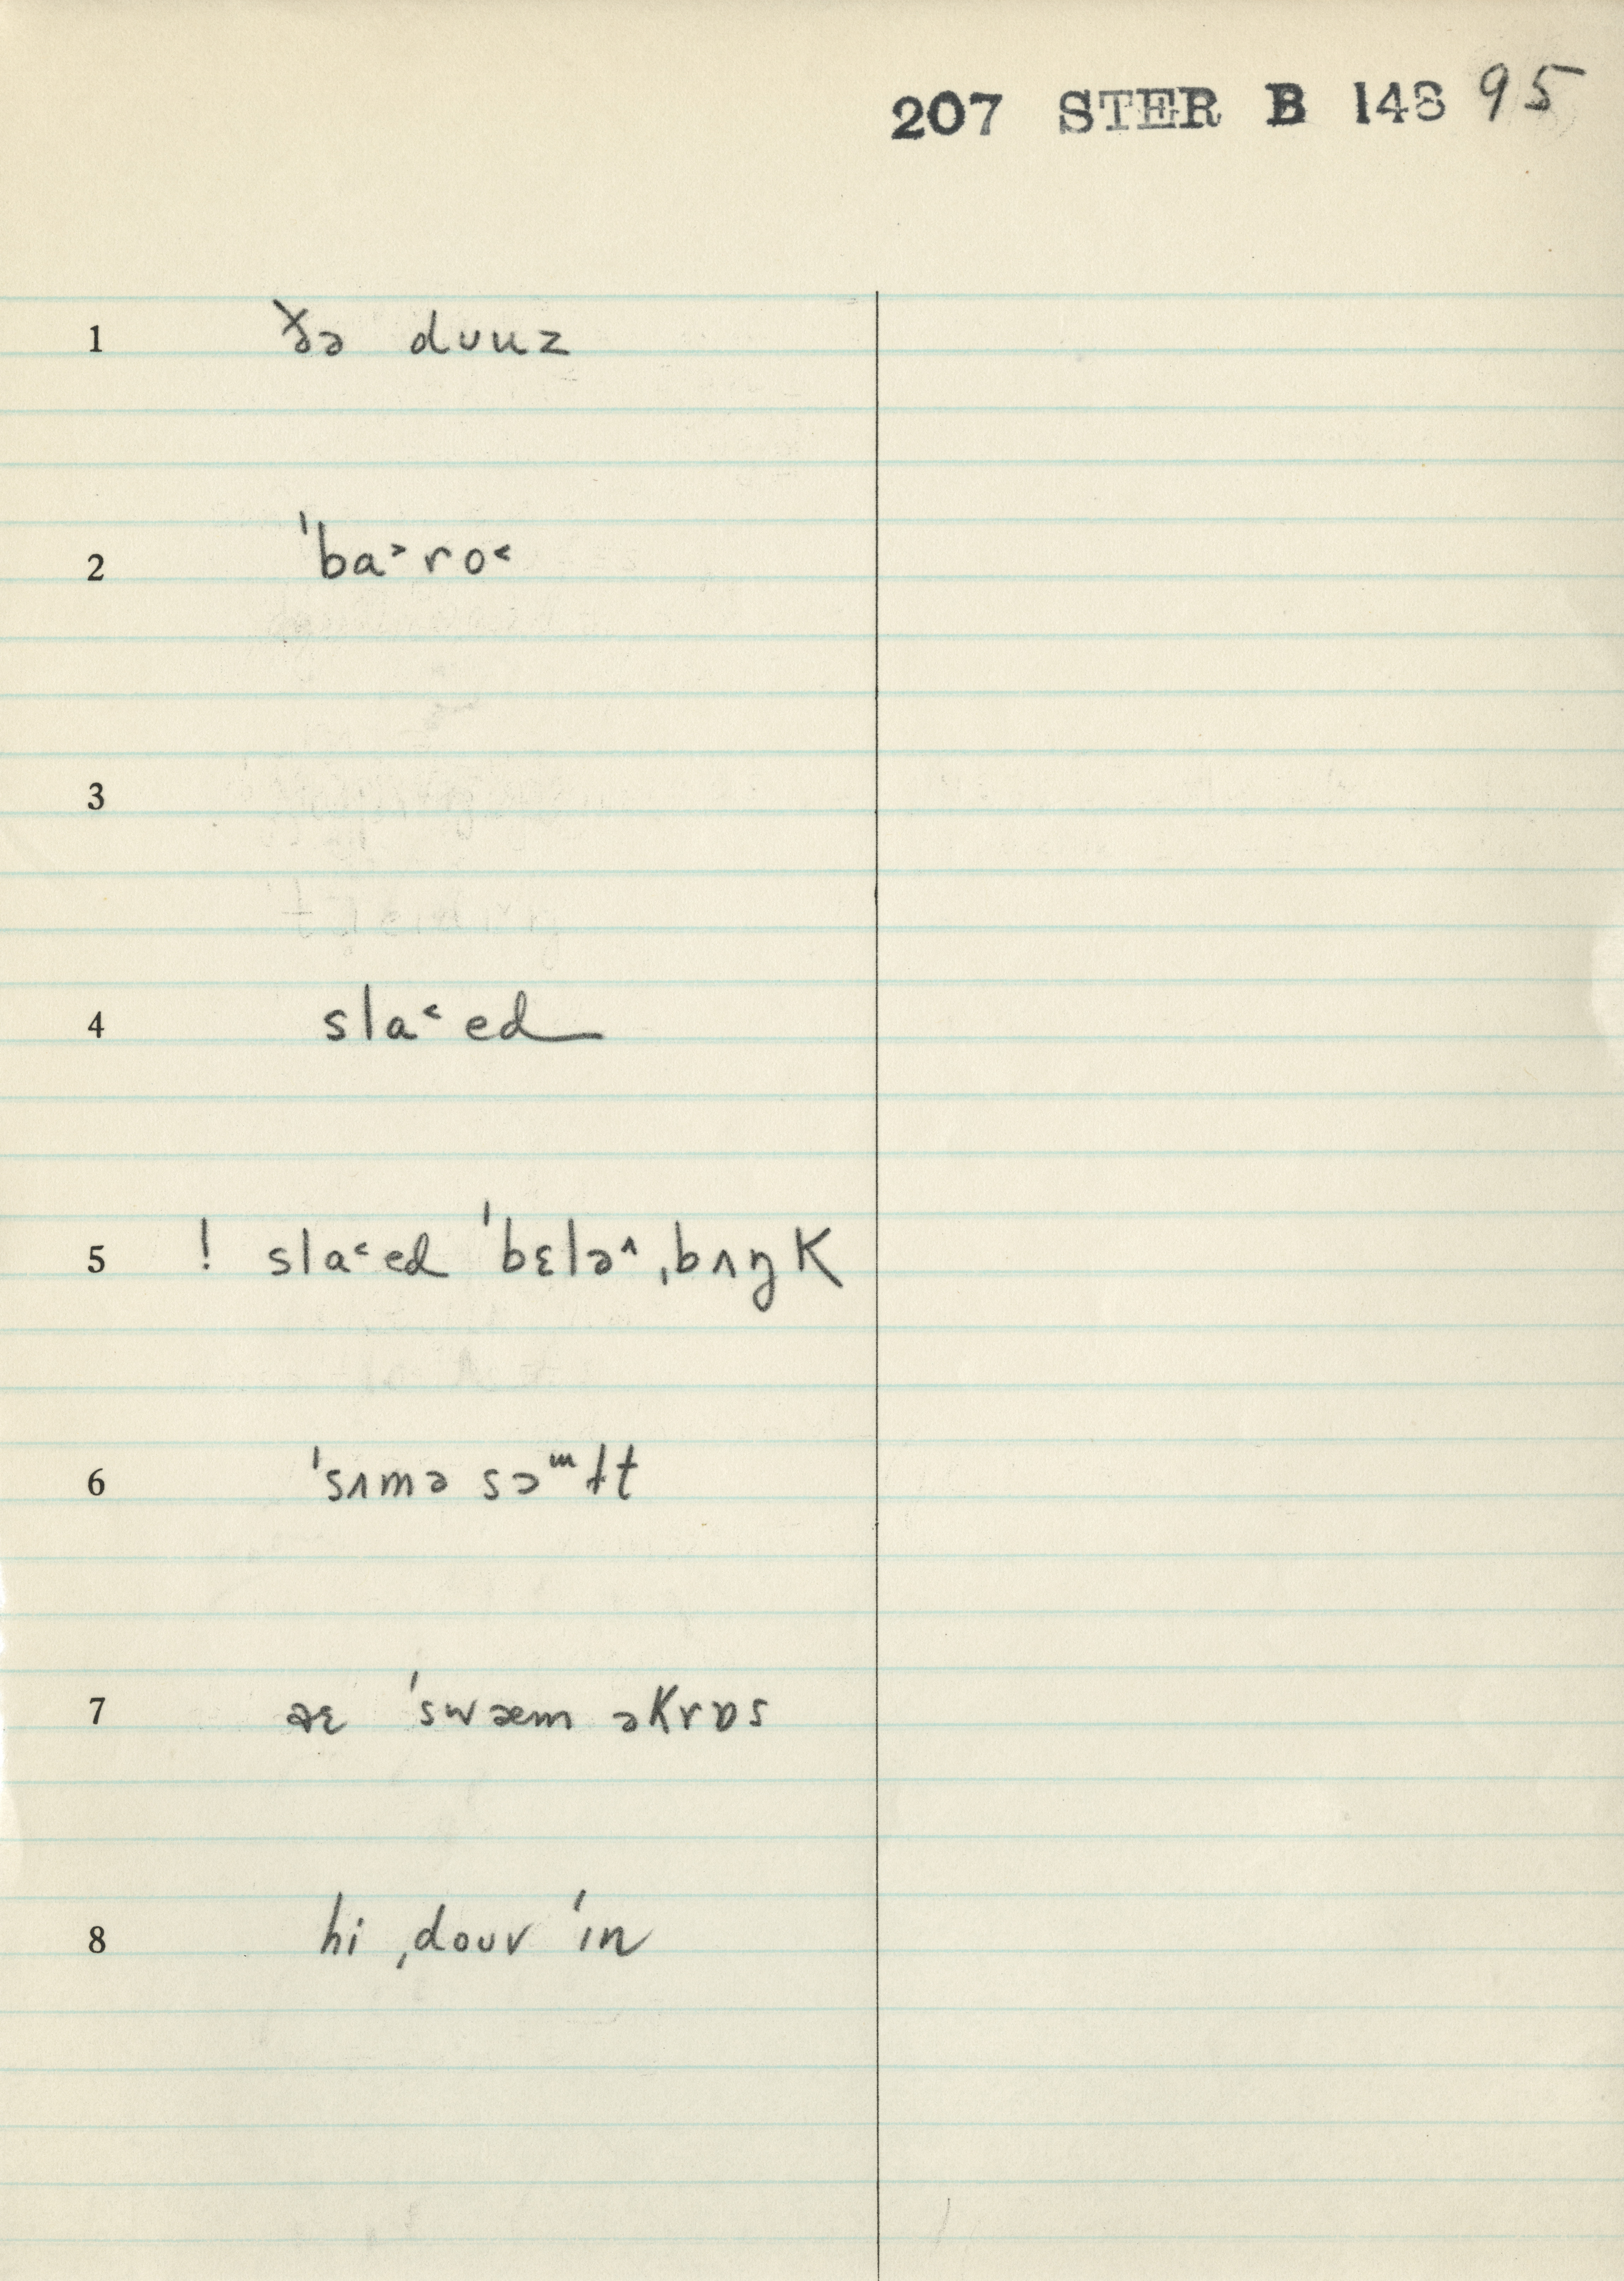 207 STER B 148 95
1 ðə duuz
2 ˈba˃ro˂
3
4 sla˂ed
5 ! sla˂ed ˈbɛlə˄ˌbʌŋK
6 ˈsʌmə sɔᵚɫt
7 aɛ ˈswæm əKrɒs
8 hi ˌdouv ˈɪn